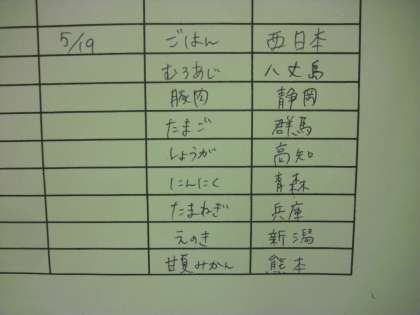 5/19 ごはん 西日本
むろあじ 八丈島
豚肉 静岡
たまご 群馬
しょうが 高知
にんにく 青森
たまねぎ 兵庫
えのき 新潟
甘夏みかん 熊本